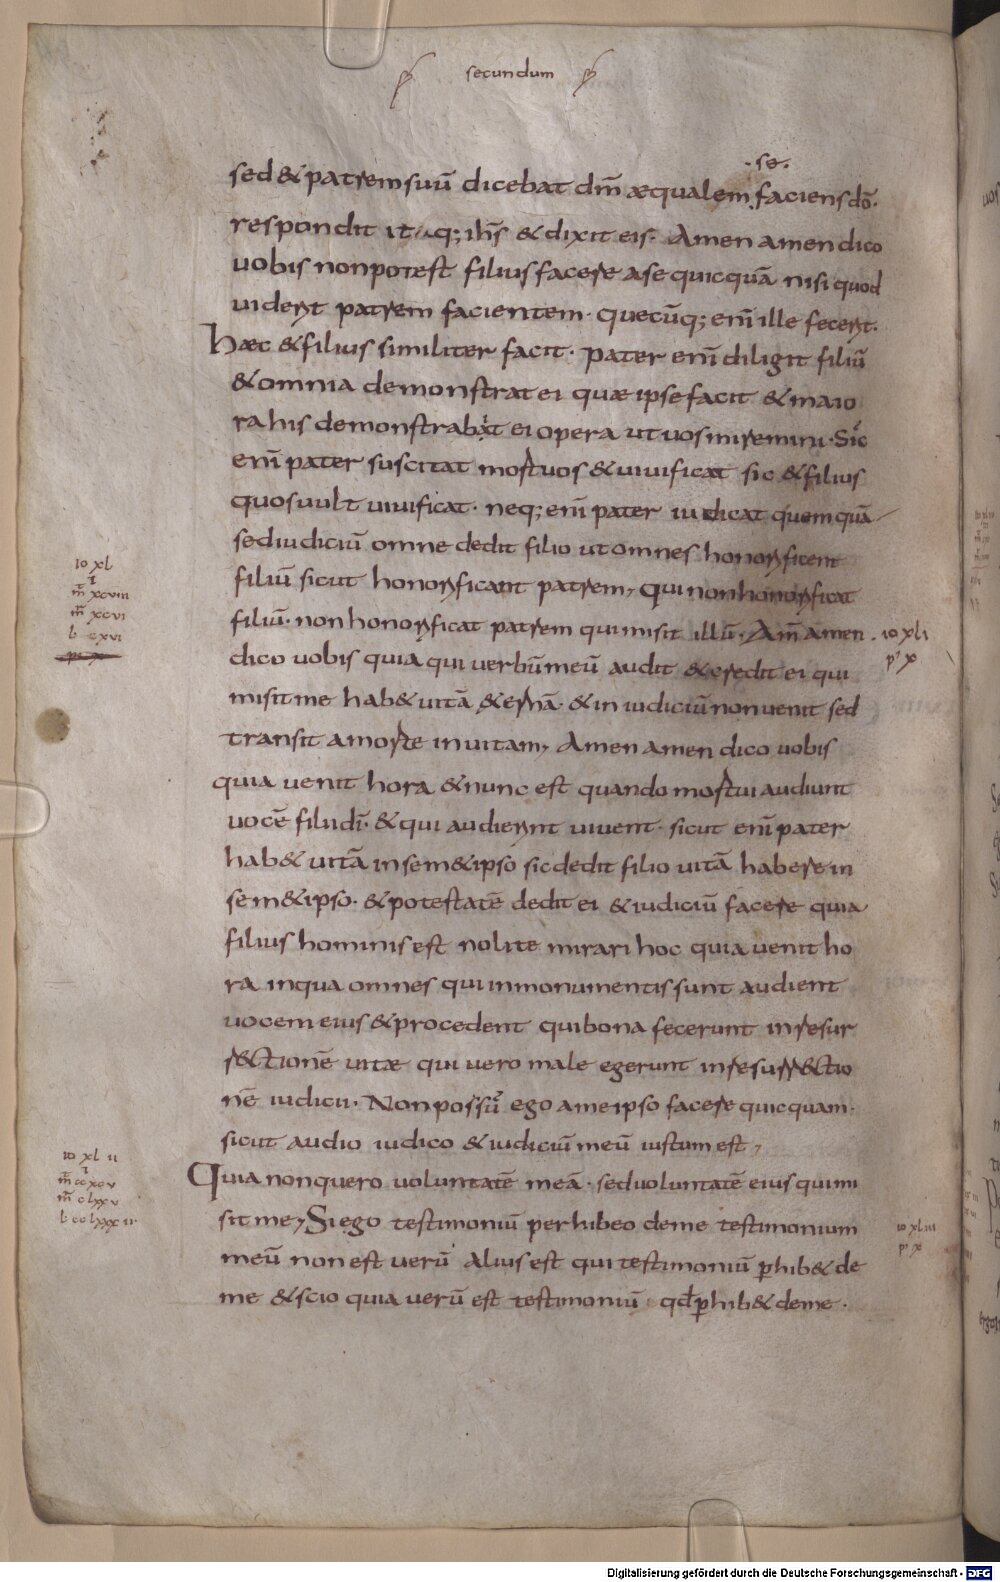 secundum
·se·
sed & patrem suū dicebat dm̄ æqualem faciens dō·
respondit itaq; ihs̄ & dixit eis· Amen amen dico
uobis non potest filius facere a se quicquā nisi quod
uiderit patrem facientem· quecūq; enī ille fecerit·
Hæc & filius similiter facit· pater enī diligit filiū
& omnia demonstrat ei quæ ipse facit & maio
ra his demonstrabit ei opera ut uos miremini· Sic
enī pater suscitat mortuos & uiuificat sic & filius
quos uult uiuificat· neq; enī pater iudicat quemquā
sed iudiciū omne dedit filio ut omnes honorificent
filiū sicut honorificant patrem, Qui non honorificat
filiū· non honorificat patrem qui misit illū· Am̄ amen
dico uobis quia qui uerbū meū audit & credit ei qui
misit me hab& uitā &ernā· & in iudiciū non uenit sed
transit a morte in uitam, Amen amen dico uobis
quia uenit hora & nunc est quando mortui audiunt
uocē filii dī· & qui audierint uiuent· sicut enī pater
hab& uitā in sem&ipso sic dedit filio uitā habere in
sem&ipso· & potestatē dedit ei & iudiciū facere quia
filius hominis est nolite mirari hoc quia uenit ho
ra in qua omnes qui in monumentis sunt audient
uocem eius & procedent qui bona fecerunt in resur
r&ctionē uitæ qui uero male egerunt in resurr&ctio
nē iudicii· Non possū ego a me ipso facere quicquam·
sicut audio iudico & iudiciū meū iustum est,
Quia non quero uoluntatē meā· sed uoluntatē eius qui mi
sit me, Si ego testimoniū perhibeo de me testimonium
meū non est uerū Alius est qui testimoniū phib& de
me & scio quia uerū est testimoniū qđ phib& de me·
io xl
m̄ xcviii
m̄ xcvi
l· cxvi
io xli
p' x
io xl ii
m̄ ccxcv
m̄ clxxv
l· cclxxxii·
io xliii
p' x
Digitalisierung gefördert durch die Deutsche Forschungsgemeinschaft - DFG